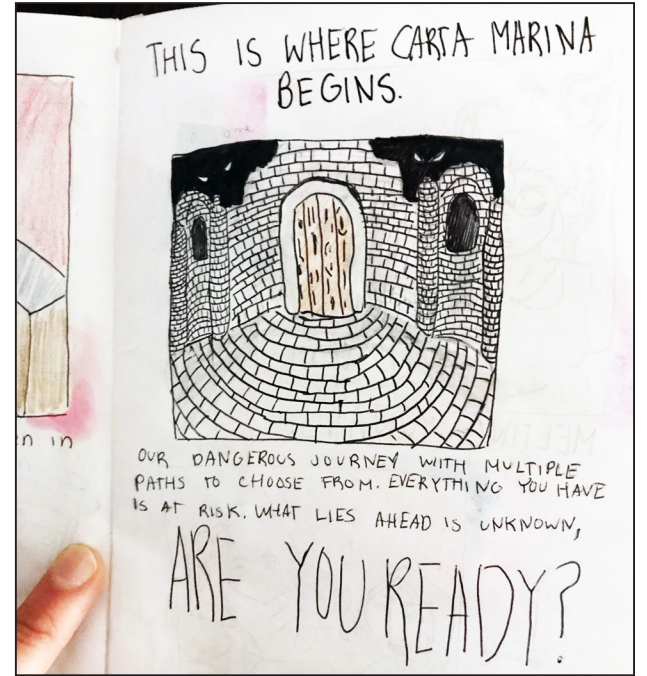 THIS IS WHERE CARTA MARINA
BEGINS.
OUR DANGEROUS JOURNEY WITH MULTIPLE
PATHS TO CHOOSE FROM. EVERYTHING YOU HAVE
IS AT RISK. WHAT LIES AHEAD IS UNKNOWN,
ARE YOU READY?
in